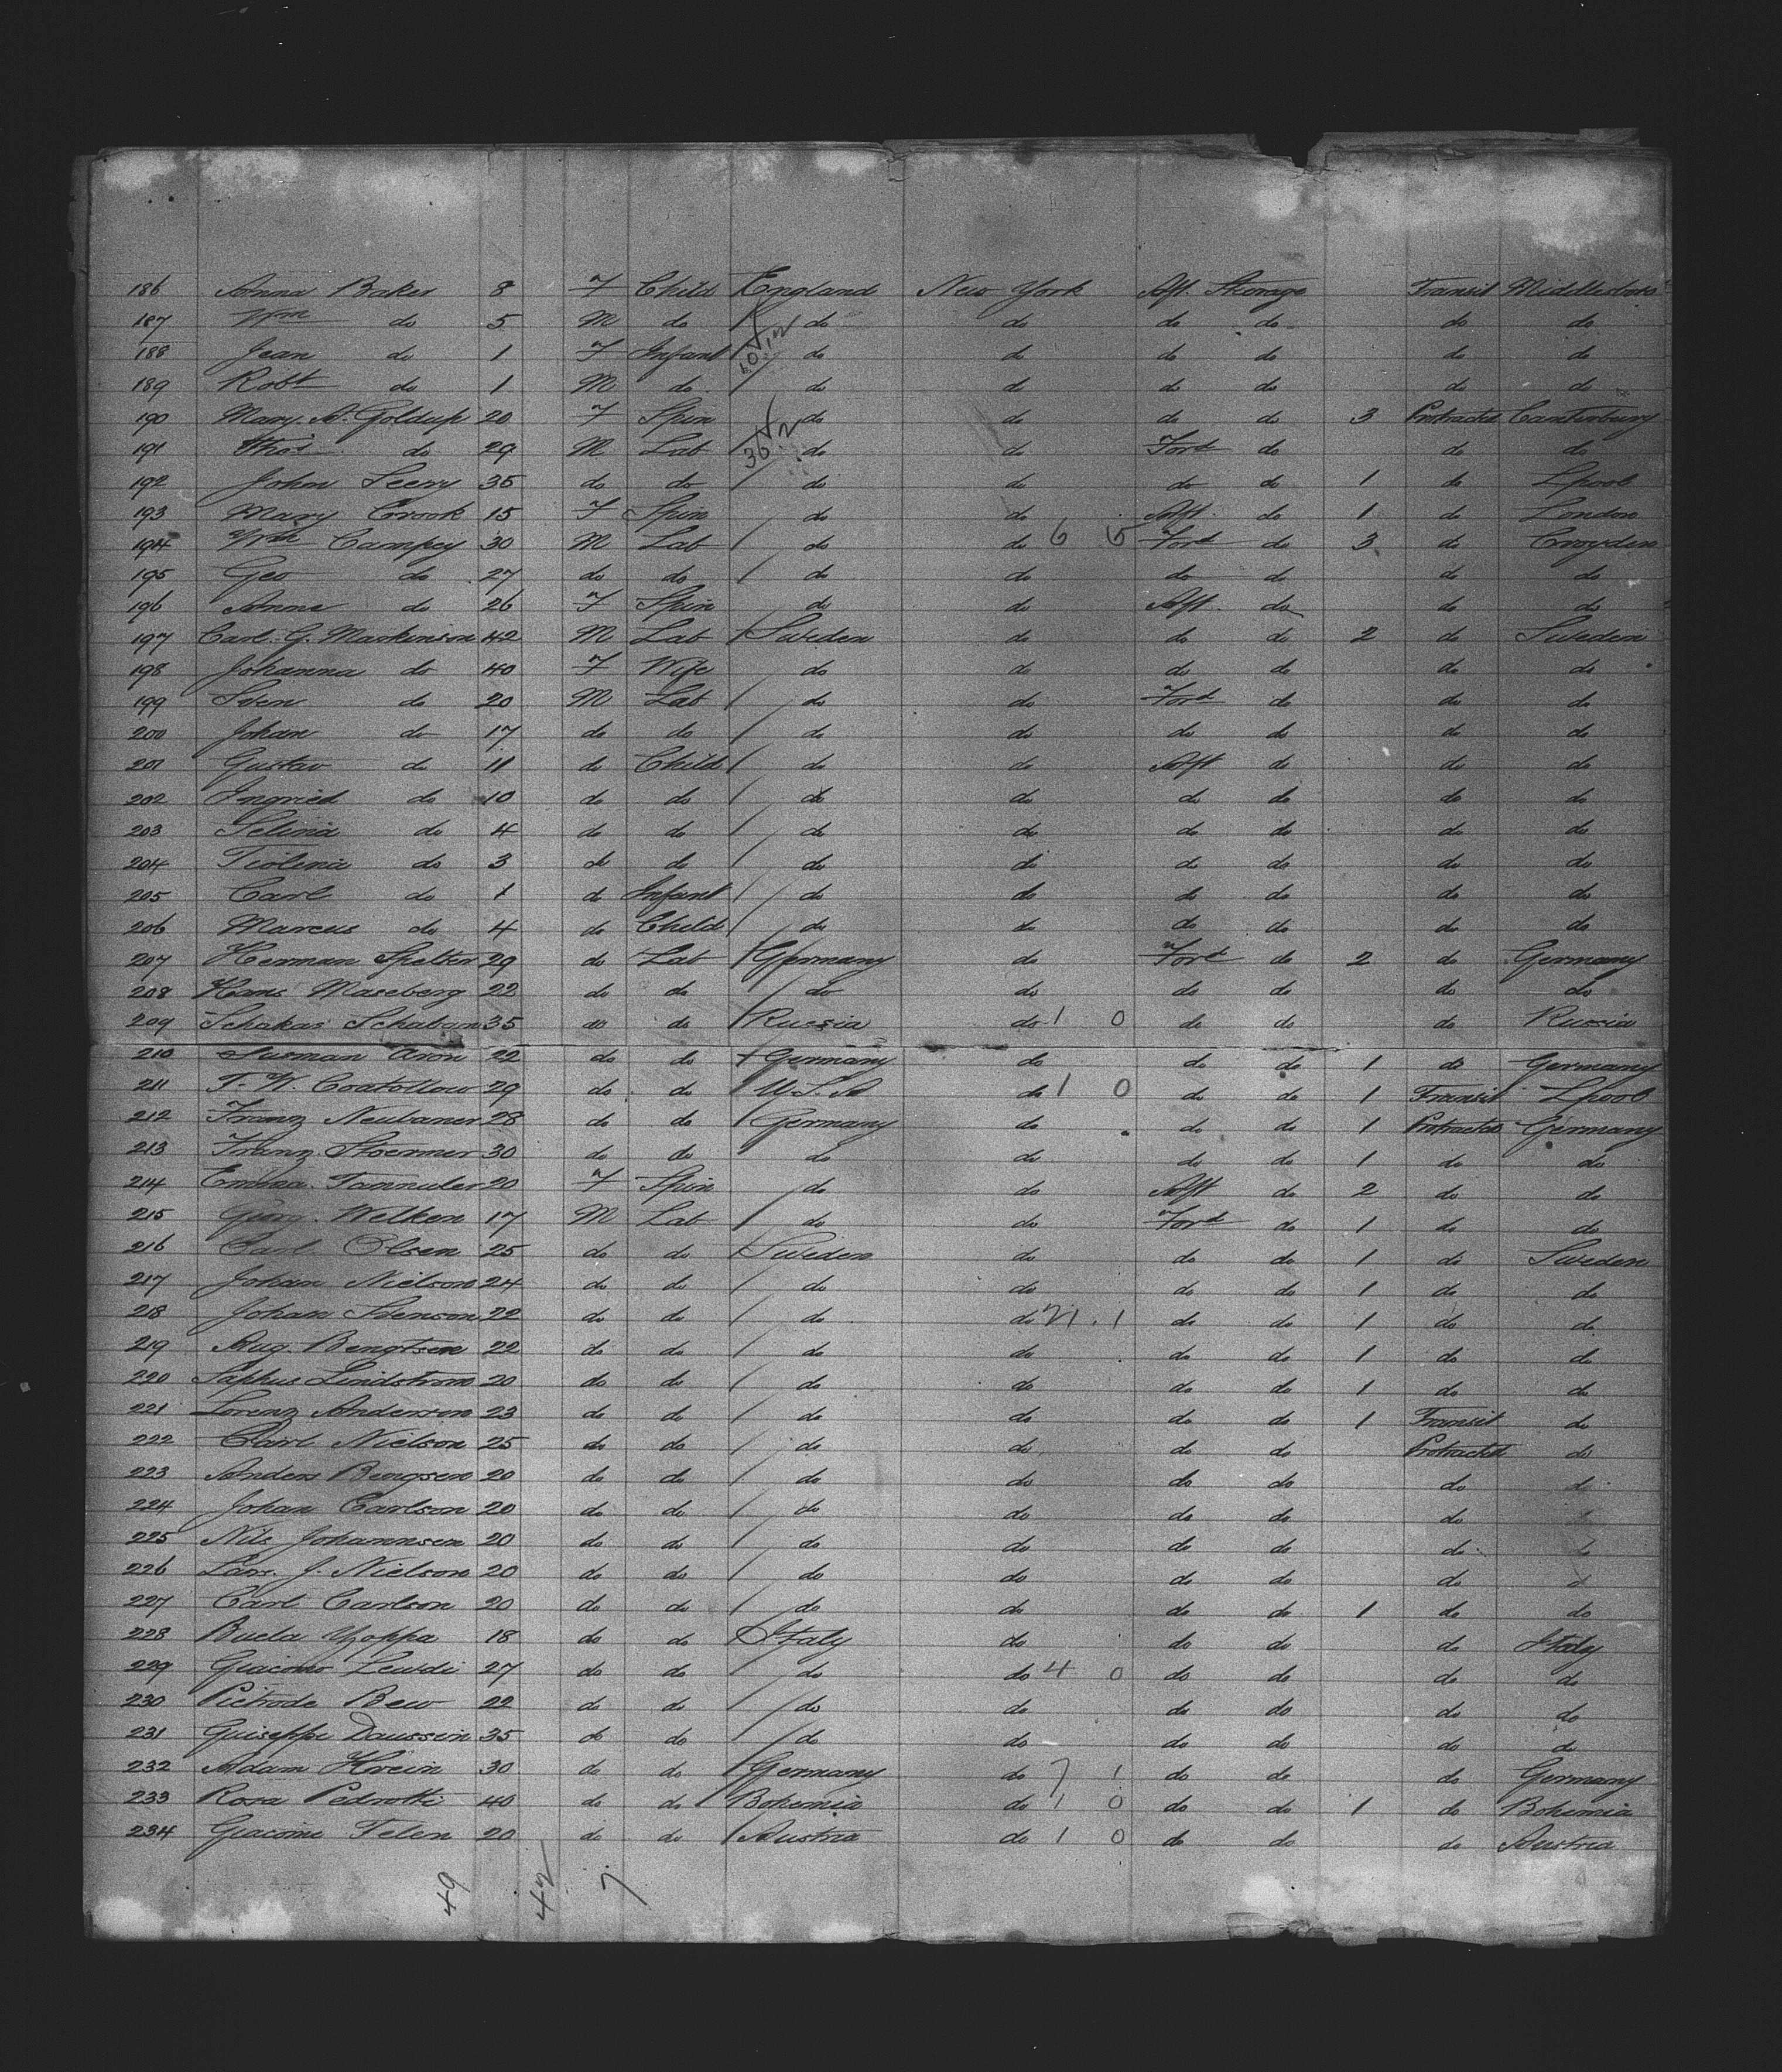 186 Anna Baker 8 F Child England New York Aft Steerage Transit Middlesboro
187 Wm do 5 M do / do do do do do do
188 Jean do 1 F Infant / do do do do do do
189 Robt do 1 M do / do do do do do do
190 Mary A. Goldup 20 F Spin do do do do 3 Protracted Canterbury
191 Thos do 29 M Lab / do do Ford do do do
192 John Leery 35 do do / do do do do 1 do Lpool
193 Mary Crook 15 F Spin do do Aft do 1 do London
194 Wm Campey 30 M Lab / do do 6 Ford do 3 do Croyden
195 Geo do 27 do do / do do do do do do
196 Anna do 26 F Spin do do Aft do do do
197 Carl G. Markinson 42 M Lab / Sweden do do do 2 do Sweden
198 Johanna do 40 F Wife do do do do do do
199 Sven do 20 M Lab / do do Ford do do do
200 Johan do 17 do do / do do do do do do
201 Gustav do 11 do Child / do do Aft do do do
202 Ingried do 10 do do / do do do do do do
203 Selina do 4 do do / do do do do do do
204 Tiolina do 3 do do / do do do do do do
205 Carl do 1 do Infant / do do do do do do
206 Marcus do 4 do Child / do do do do do do
207 Herman Spelter 29 do Lab / Germany do Ford do 2 do Germany
208 Hans Maseberg 22 do do / do do do do do do
209 Schakas Schaban 35 do do / Russia do 1 0 do do do Russia
210 Susman Aron 22 do do / Germany do do do 1 do Germany
211 T. W. 29 do do / U.S.A do 1 0 do do 1 Transit Lpool
212 Franz Neubaner 28 do do / Germany do do do 1 Protracted Germany
213 Franz Stoermer 30 do do do do do do 1 do do
214 Emma 20 F Spin do do Aft do 2 do do
215 Georg Welken 17 M Lab / do do Ford do 1 do do
216 Carl Olsen 25 do do / Sweden do do do 1 do Sweden
217 Johan Nielson 24 do do / do do do do 1 do do
218 Johan Svenson 22 do do / do do 21 . 1 do do 1 do do
219 Aug. Bengtsen 22 do do / do do do do 1 do do
220 Saphus Lindstrom 20 do do / do do do do 1 do do
221 Lorenz Anderson 23 do do / do do do do 1 Transit do
222 Carl Nielson 25 do do / do do do do Protracted do
223 Anders Bengsen 20 do do / do do do do do do
224 Johan Carlson 20 do do / do do do do do
225 Nils Johannsen 20 do do / do do do do do
226 Lars. J. Nielson 20 do do / do do do do do
227 Carl Carlson 20 do do / do do do do 1 do do
228 Buela Yzoppa 18 do do Italy do do do do Italy
229 Giacomo 27 do do / do do 4 0 do do do do
230 Pietrode Bew 22 do do / do do do do do do
231 Guiseppe Daussin 35 do do / do do do do do do
232 Adam Hrein 30 do do / Germany do 7 1 do do do Germany
233 Rosa Pedrotti 40 do do / Bohemia do 1 0 do do 1 do Bohemia
234 Giacomi Felen 20 do do / Austria do 1 0 do do do Austria
49 42 7